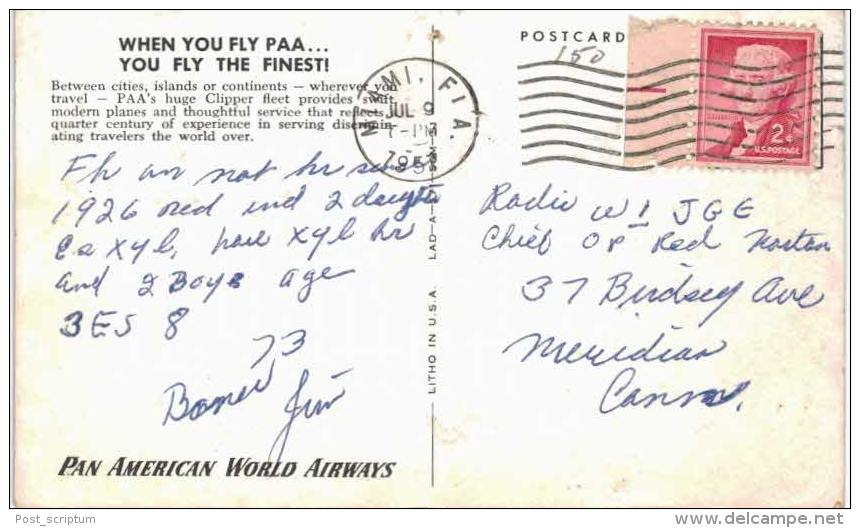 WHEN YOU FLY PAA...
YOU FLY THE FINEST!
Between cities, islands or continents — wherever you
travel — PAA's huge Clipper fleet provides swift
modern planes and thoughtful service that reflects a
quarter century of experience in serving discrimin-
ating travelers the world over.
am not hr since
1926 and 2
xyl, have xyl hr
and 2 Boys age
3 ES 8
73
Jim
PAN AMERICAN WORLD AIRWAYS
LITHO IN U.S.A.
POSTCARD
150
MIAMI, FLA.
JUL 9
PM
2¢
U.S. POSTAGE
Radio W1JGE
Chief OP Red
37 Birdsey Ave
Meridian
Conn.
Post_scriptum
www.delcampe.net